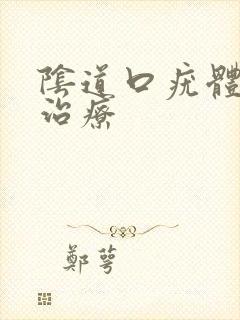 陰道口疣體
治療
鄭萼